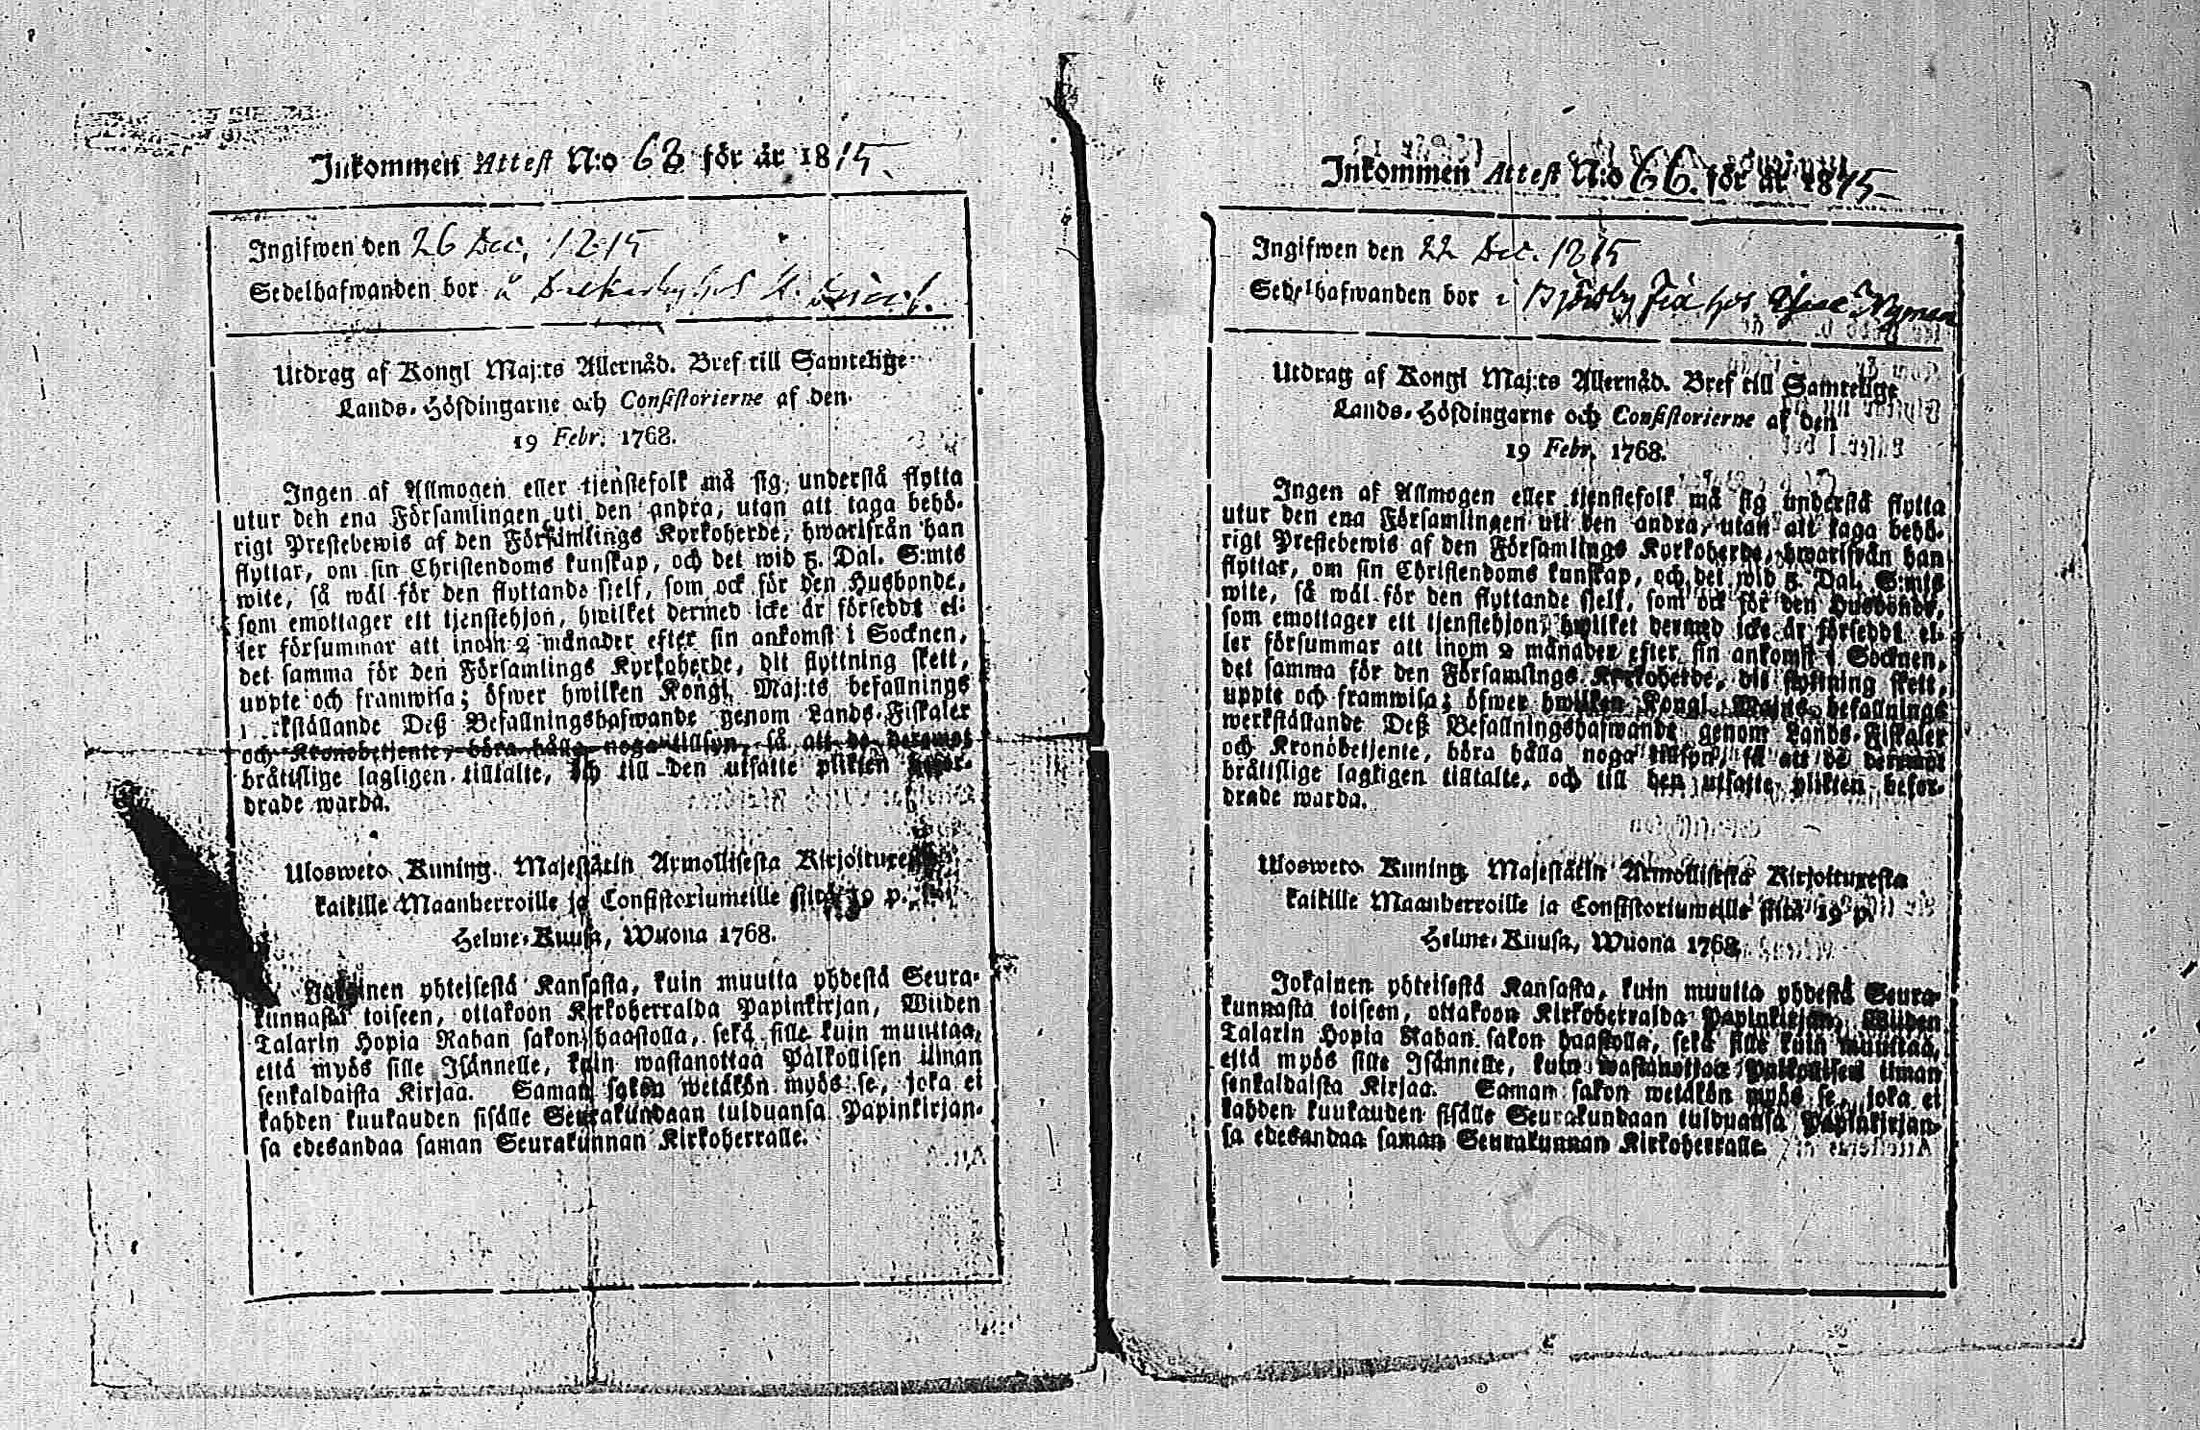 Inkommen Attest N:o 68 för år 1815
Ingifwen den 26 Dec. 1815
Sedelhafwanden bor
Utdrag af Kongl Maj:ts Allernåd. Bref till Samtelige
Lands-Höfdingarne och Consistorierne af den
19 Febr. 1768.
Ingen af Allmogen eller tjenstefolk må sig understå flytta
utur den ena Församlingen uti den andra, utan att taga behö-
rigt Prestebewis af den Församlings Kyrkoherde, hwarifrån han
flyttar, om sin Christendoms kunskap, och det wid 5. Dal. S:mts
wite, så wäl för den flyttande sjelf, som ock för den Husbonde,
som emottager ett tjenstehjon, hwilket dermed icke är försedt el-
ler försummar att inom 2 månader efter sin ankomst i Socknen,
det samma för den Församlings Kyrkoherde, dit flyttning skett,
uppte och framwisa; öfwer hwilken Kongl. Maj:ts befallnings
kställande Deß Befallningshafwande genom Lands-Fiskaler
och Kronobetjente, böra hålla noga tillsyn, så att de deremot
bråttslige lagligen tilltalte, och till den utsatte plikten befor-
drade warda.
Ulosweto Kuning. Majestätin Armollisesta Kirjoituxesta
kaikille Maanherroille ja Consistoriumeille siitä 19 p.
Helme-Kuusa, Wuona 1768.
Jokainen yhteisestä Kansasta, kuin muutta yhdestä Seura-
kunnasta toiseen, ottakoon Kirkoherralda Papinkirjan, Wiiden
Talarin Hopia Rahan sakon haastolla, sekä sille kuin muuttaa,
että myös sille Isännelle, kuin wastanottaa Palkollisen ilman
senkaldaista Kirjaa. Saman sakon wetäkön myös se, joka ei
kahden kuukauden sisälle Seurakundaan tulduansa Papinkirjan-
sa edesandaa saman Seurakunnan Kirkoherralle.
Inkommen Attest N:o 66. för år 1815
Ingifwen den 22 Dec. 1815
Sedelhafwanden bor i Nyman
Utdrag af Kongl Maj:ts Allernåd. Bref till Samtelige
Lands-Höfdingarne och Consistorierne af den
19 Febr. 1768.
Ingen af Allmogen eller tjenstefolk må sig understå flytta
utur den ena Församlingen uti den andra, utan att taga behö-
rigt Prestebewis af den Församlings Kyrkoherde, hwarifrån han
flyttar, om sin Christendoms kunskap, och det wid 5. Dal. S:mts
wite, så wäl för den flyttande sjelf, som ock för den Husbonde,
som emottager ett tjenstehjon, hwilket dermed icke är försedt el-
ler försummar att inom 2 månader efter sin ankomst i Socknen,
det samma för den Församlings Kyrkoherde, dit flyttning skett,
uppte och framwisa; öfwer hwilken Kongl. Maj:ts befallnings
werkställande Deß Befallningshafwande genom Lands-Fiskaler
och Kronobetjente, böra hålla noga tillsyn, så att de deremot
bråttslige lagligen tilltalte, och till den utsatte plikten befor-
drade warda.
Ulosweto Kuning. Majestätin Armollisesta Kirjoituxesta
kaikille Maanherroille ja Consistoriumeille siitä 19 p.
Helme-Kuusa, Wuona 1768.
Jokainen yhteisestä Kansasta, kuin muutta yhdestä Seura-
kunnasta toiseen, ottakoon Kirkoherralda Papinkirjan, Wiiden
Talarin Hopia Rahan sakon haastolla, sekä sille kuin muuttaa,
että myös sille Isännelle, kuin wastanottaa Palkollisen ilman
senkaldaista Kirjaa. Saman sakon wetäkön myös se, joka ei
kahden kuukauden sisälle Seurakundaan tulduansa Papinkirjan-
sa edesandaa saman Seurakunnan Kirkoherralle.